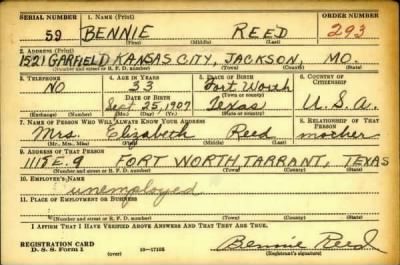 SERIAL NUMBER 1. NAME (Print) ORDER NUMBER
59 BENNIE REED 293
(First) (Middle) (Last)
2. ADDRESS (Print)
1521 GARFIELD KANSAS CITY, JACKSON, MO.
(Number and street or R. F. D. number) (Town) (County) (State)
3. TELEPHONE 4. AGE IN YEARS 5. PLACE OF BIRTH 6. COUNTRY OF CITIZENSHIP
NO 33 Fort Worth
(Town or county)
DATE OF BIRTH
Sept. 25, 1907 Texas U.S.A.
(Exchange) (Number) (Mo.) (Day) (Yr.) (State or country)
7. NAME OF PERSON WHO WILL ALWAYS KNOW YOUR ADDRESS 8. RELATIONSHIP OF THAT PERSON
Mrs. Elizabeth Reed mother
(Mr., Mrs., Miss) (First) (Middle) (Last)
9. ADDRESS OF THAT PERSON
1115 E. 9 FORT WORTH TARRANT, TEXAS
(Number and street or R. F. D. number) (Town) (County) (State)
10. EMPLOYER'S NAME
unemployed
11. PLACE OF EMPLOYMENT OR BUSINESS
(Number and street or R. F. D. number) (Town) (County) (State)
I AFFIRM THAT I HAVE VERIFIED ABOVE ANSWERS AND THAT THEY ARE TRUE.
REGISTRATION CARD
D. S. S. Form 1 (over) 16-17105 Bennie Reed
(Registrant's signature)